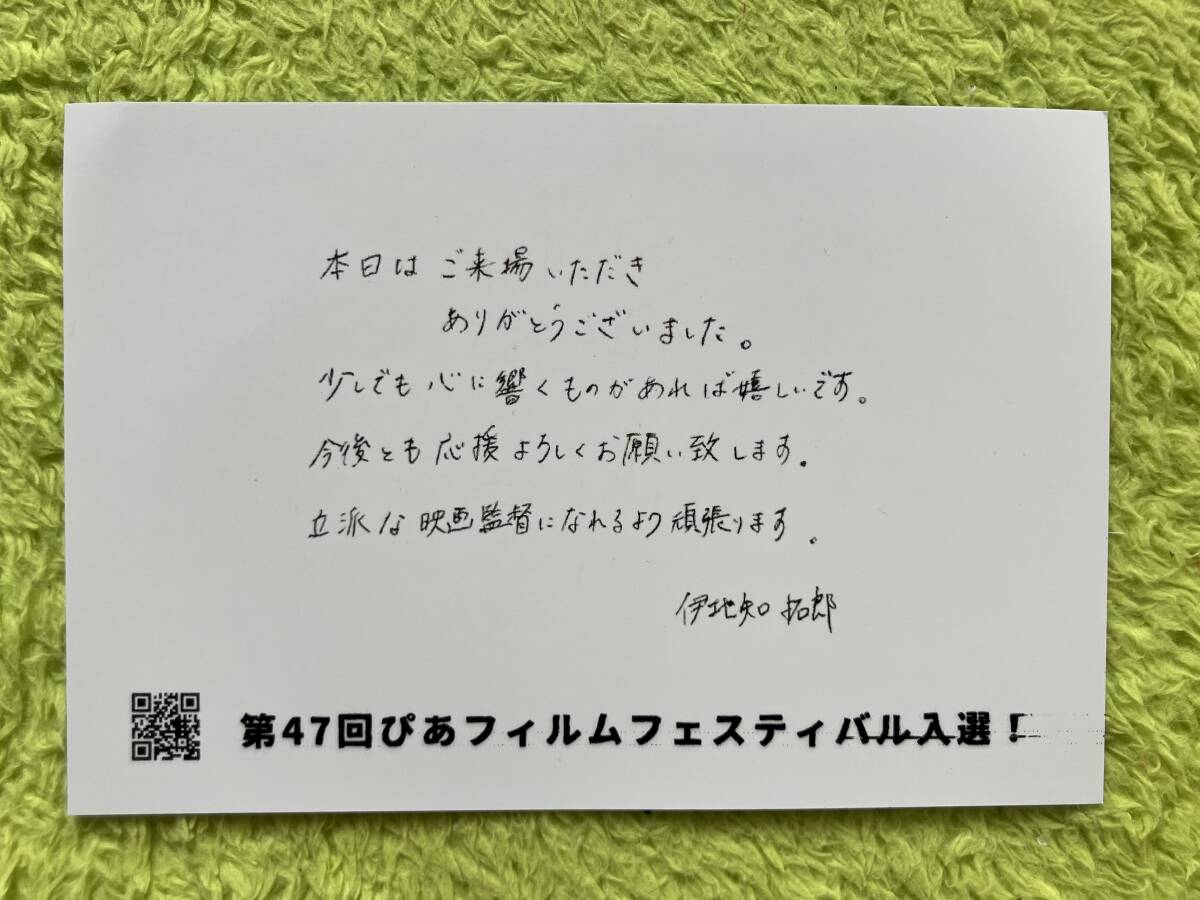 本日はご来場いただき
ありがとうございました。
少しでも心に響くものがあれば嬉しいです。
今後とも応援よろしくお願い致します。
立派な映画監督になれるよう頑張ります。
伊地知 拓郎
第47回ぴあフィルムフェスティバル入選！